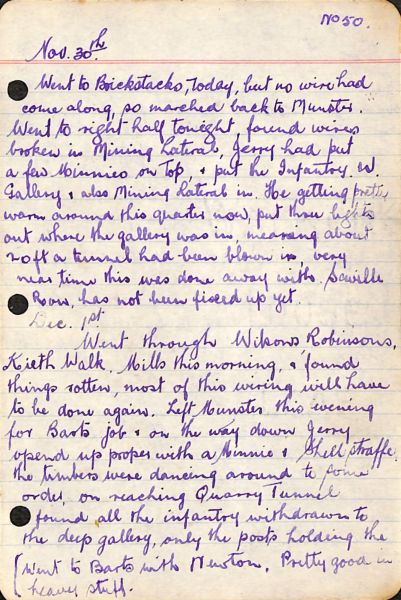 No 50.
Nov. 30th
Went to Brickstacks, Today, but no wire had
come along, so marched back to Munster.
Went to right half tonight, found wires
broken in Mining Lateral, Jerry had put
a few Minnies on Top, & put the Infantry W.
Gallery & also Mining Lateral in. He getting pretty
warm around this quarter now, put three lights
out where the gallery was in, meaning about
20 ft a tunnel had been blown in, very
near time this was done away with. Saville
Row, has not been fixed up yet.
Dec. 1st
Went through Wilsons, Robinsons,
Kieth Walk, Mills this morning, & found
things rotten, most of this wiring will have
to be done again. Left Munster this evening
for Barts job & on the way down Jerry
opend up proper with a Minnie & Shell straffe,
the timbers were dancing around to some
order, on reaching Quarry Tunnel
found all the infantry withdrawn to
the deep gallery, only the posts holding the
[Went to Barts with Newton. Pretty good in
heaver stuff.